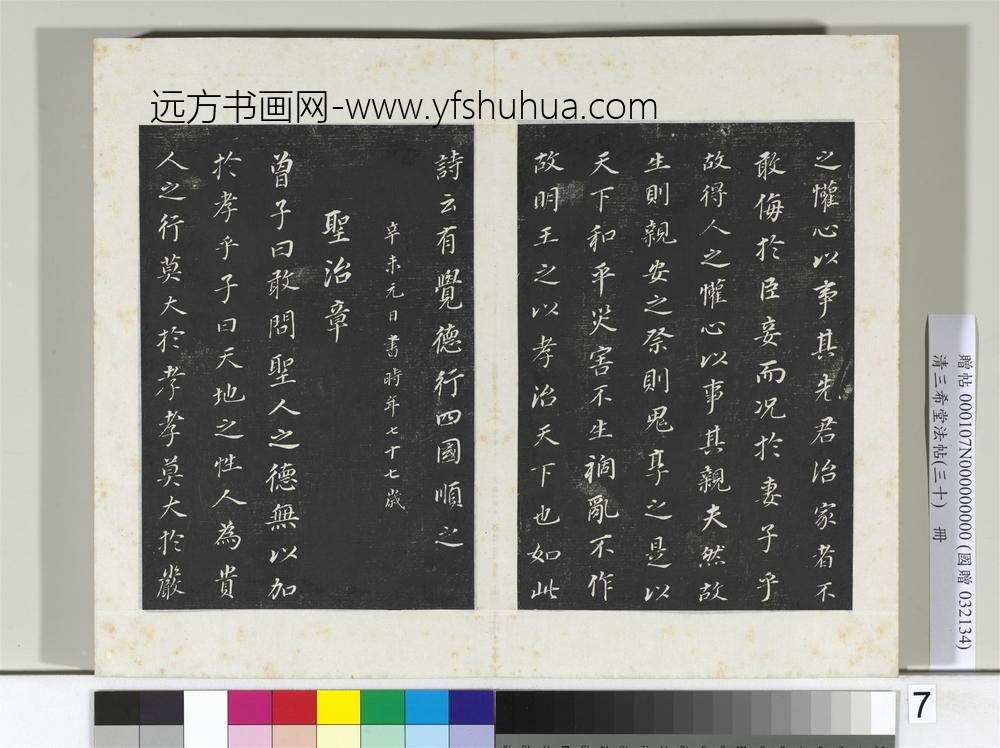 远方书画网-www.yfshuhua.com
之懽心以事其先君治家者不
敢侮於臣妾而况於妻子乎
故得人之懽心以事其親夫然故
生則親安之祭則鬼享之是以
天下和平災害不生禍亂不作
故明王之以孝治天下也如此
詩云有覺德行四國順之
辛未元日書時年七十七歲
聖治章
曾子曰敢問聖人之德無以加
於孝乎子曰天地之性人為貴
人之行莫大於孝孝莫大於嚴
贈帖 000107N000000000 (國贈 032134)
清三希堂法帖(三十) 冊
7